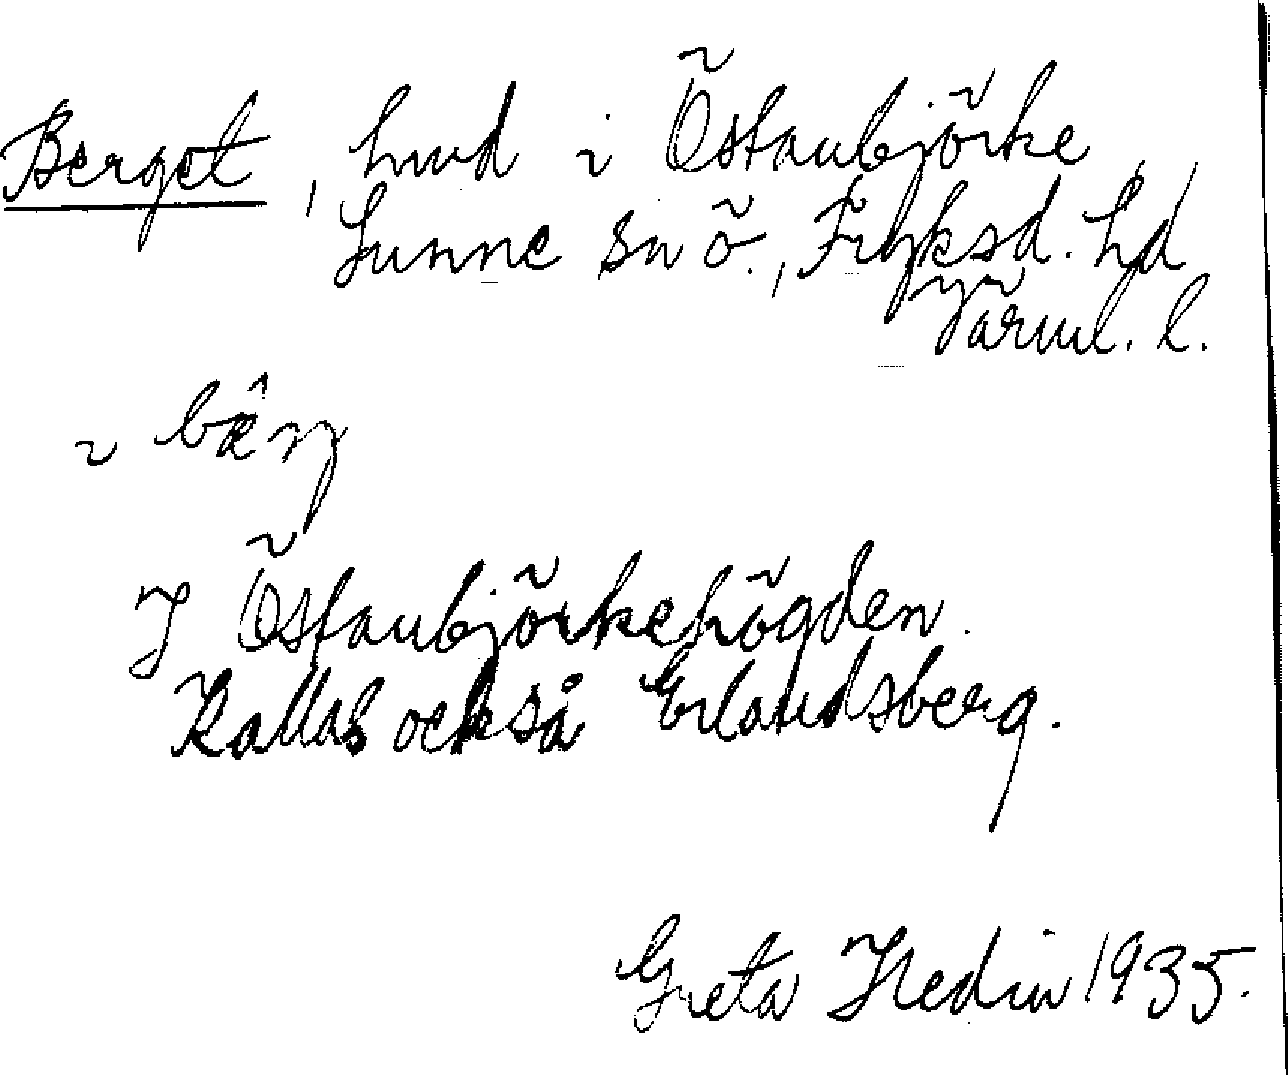 Berget, hmd i Östanbjörke,
Sunne sn ö., Fryksd. hd
Värml. l.
~ bæ̂ŋ
I Östanbjörkehögden.
Kallas också Erlandsberg.
Greta Hedin 1935.